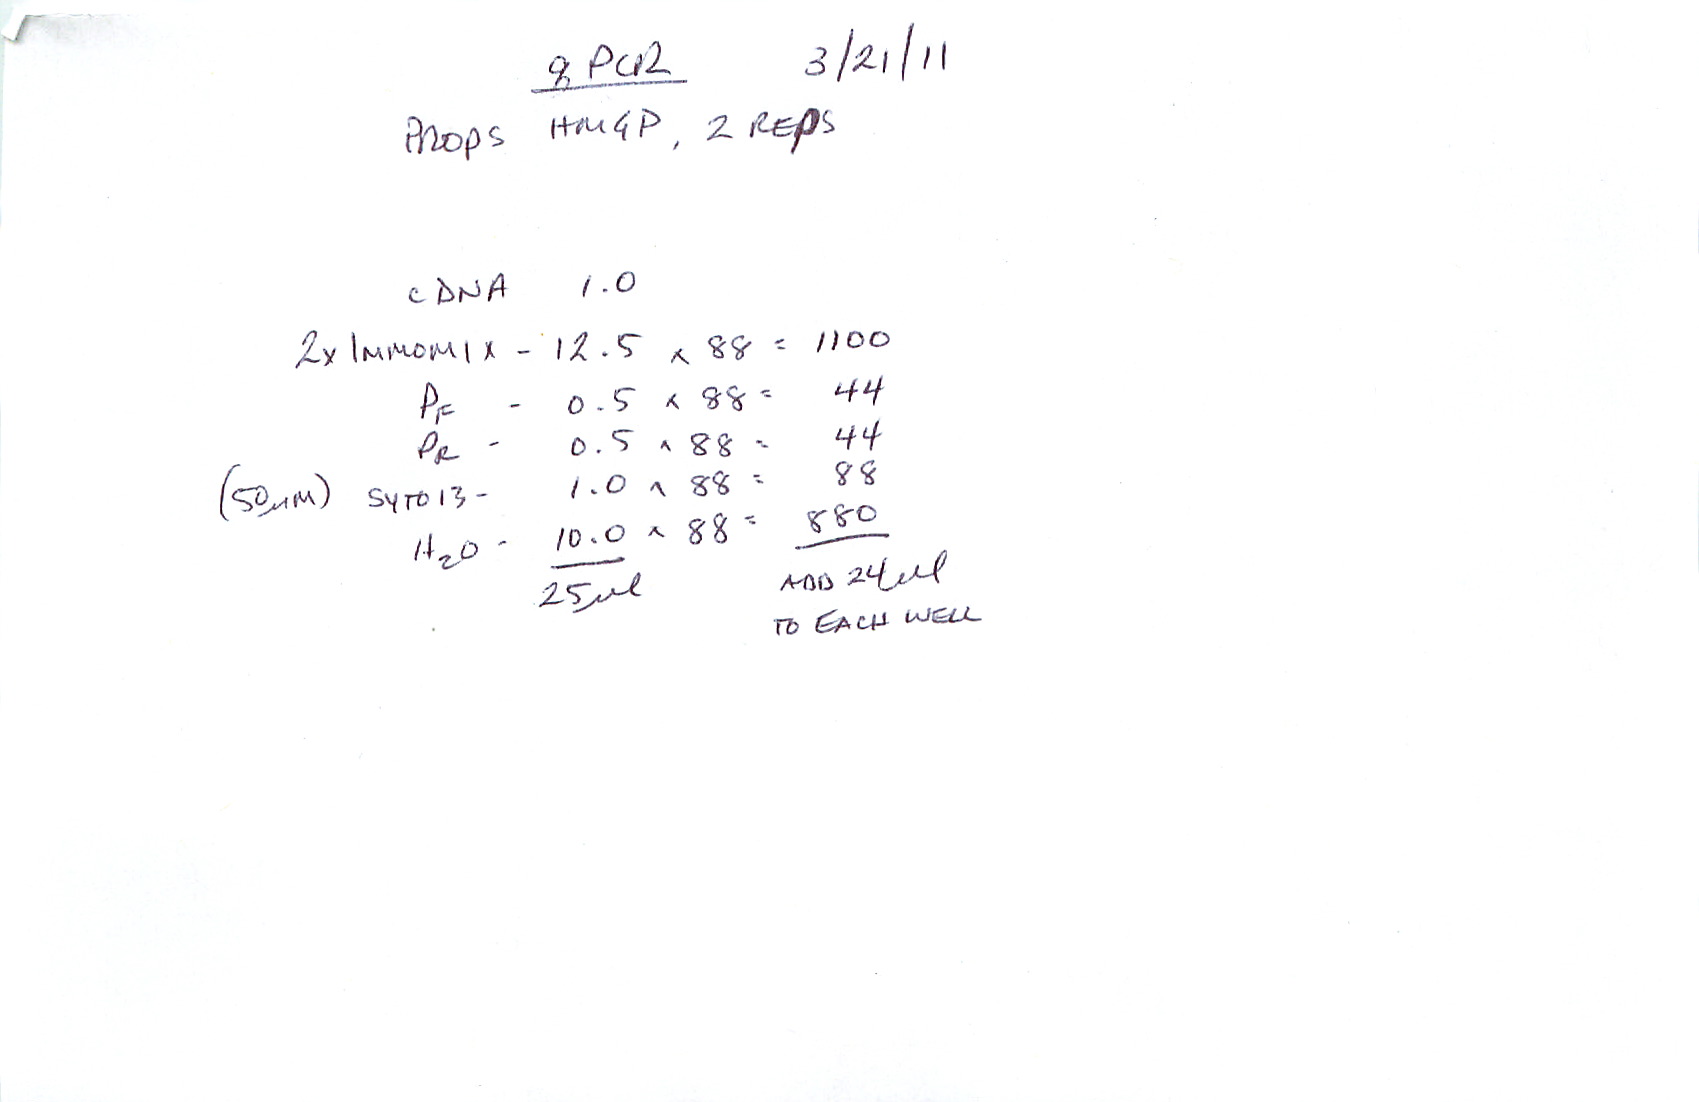 qPCR 3/21/11
Props HMGP, 2 REPS
cDNA 1.0
2x IMMOMIX - 12.5 x 88 = 1100
PF - 0.5 x 88 = 44
PR - 0.5 x 88 = 44
(50µM) SYTO13 - 1.0 x 88 = 88
H2O - 10.0 x 88 = 880
25µl ADD 24µl
TO EACH WELL